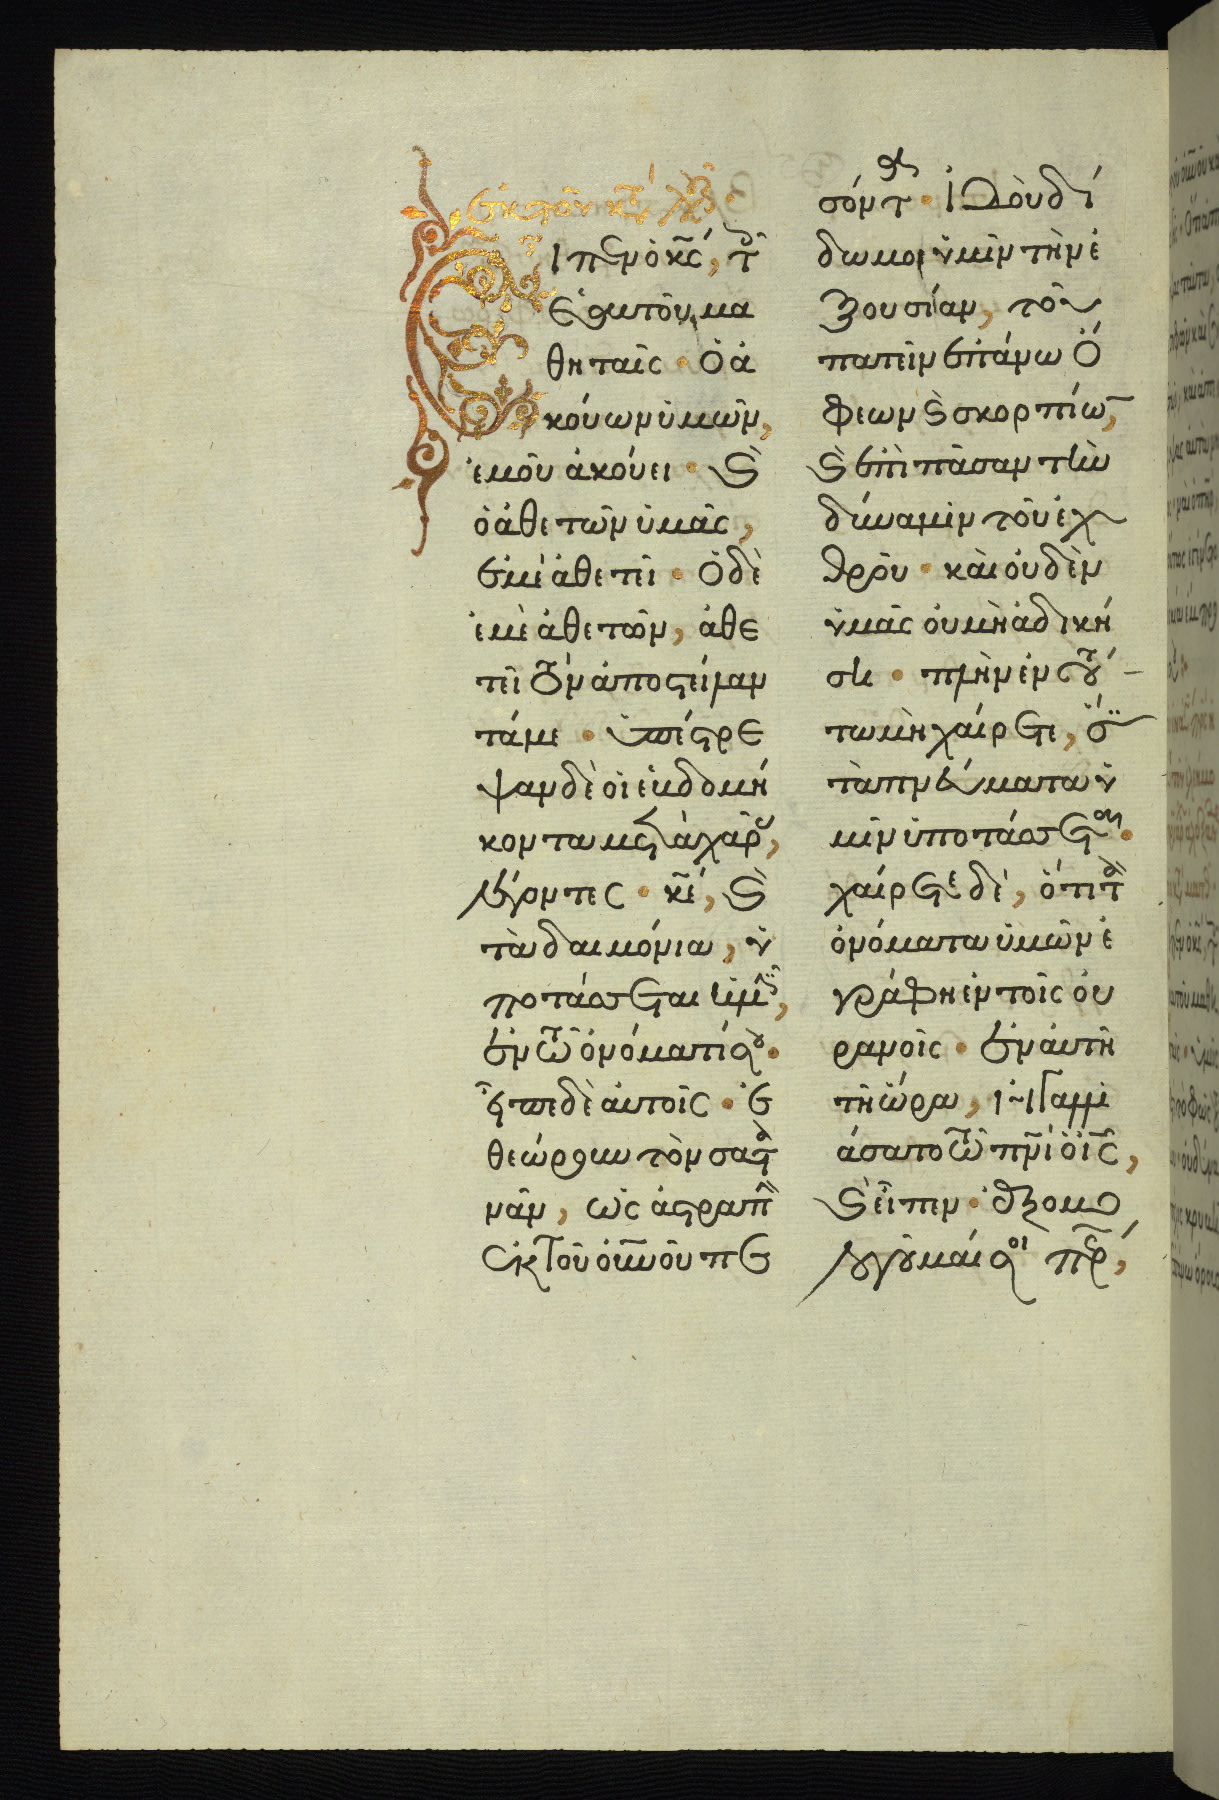 ἐκ τοῦ κτ λκ
Εἶπεν ὁ κς, τοῖς
ἑαυτοῦ μα
θηταῖς · Ὁ ἀ
κούων ὑμῶν,
ἐμοῦ ἀκούει · ϗ
ὁ ἀθετῶν ὑμᾶς,
ἐμὲ ἀθετεῖ · Ὁ δὲ
ἐμὲ ἀθετῶν, ἀθε
τεῖ τὸν ἀποστείλαν
τά με · ὑπέστρε
ψαν δὲ οἱ ἑβδομή
κοντα μετὰ χαρᾶς,
λέγοντες · κε, ϗ
τὰ δαιμόνια, ὑ
ποτάσσεται ἡμῖν,
ἐν τῷ ὀνόματί σου ·
εἶπε δὲ αὐτοῖς · ἐ
θεώρουν τὸν σατα
νᾶν, ὡς ἀστραπὴν
ἐκ τοῦ οὐνοῦ πε
σόντα · Ἰδοὺ δί
δωμι ὑμῖν τὴν ἐ
ξουσίαν, τοῦ
πατεῖν ἐπάνω ὄ
φεων ϗ σκορπίων,
ϗ ἐπὶ πᾶσαν τὴν
δύναμιν τοῦ ἐχ
θροῦ · καὶ οὐδὲν
ὑμᾶς οὐ μὴ ἀδική
ση · πλὴν ἐν τού
τω μὴ χαίρετε, ὅτι
τὰ πνεύματα ὑ
μῖν ὑποτάσσεται ·
χαίρετε δὲ, ὅτι τὰ
ὀνόματα ὑμῶν ἐ
γράφη ἐν τοῖς οὐ
ρανοῖς · ἐν αὐτῇ
τῇ ὥρα, ἠγαλλι
άσατο τῷ πνι ὁ ις,
ϗ εἶπεν · ἐξομο
λογοῦμαί σοι περ,